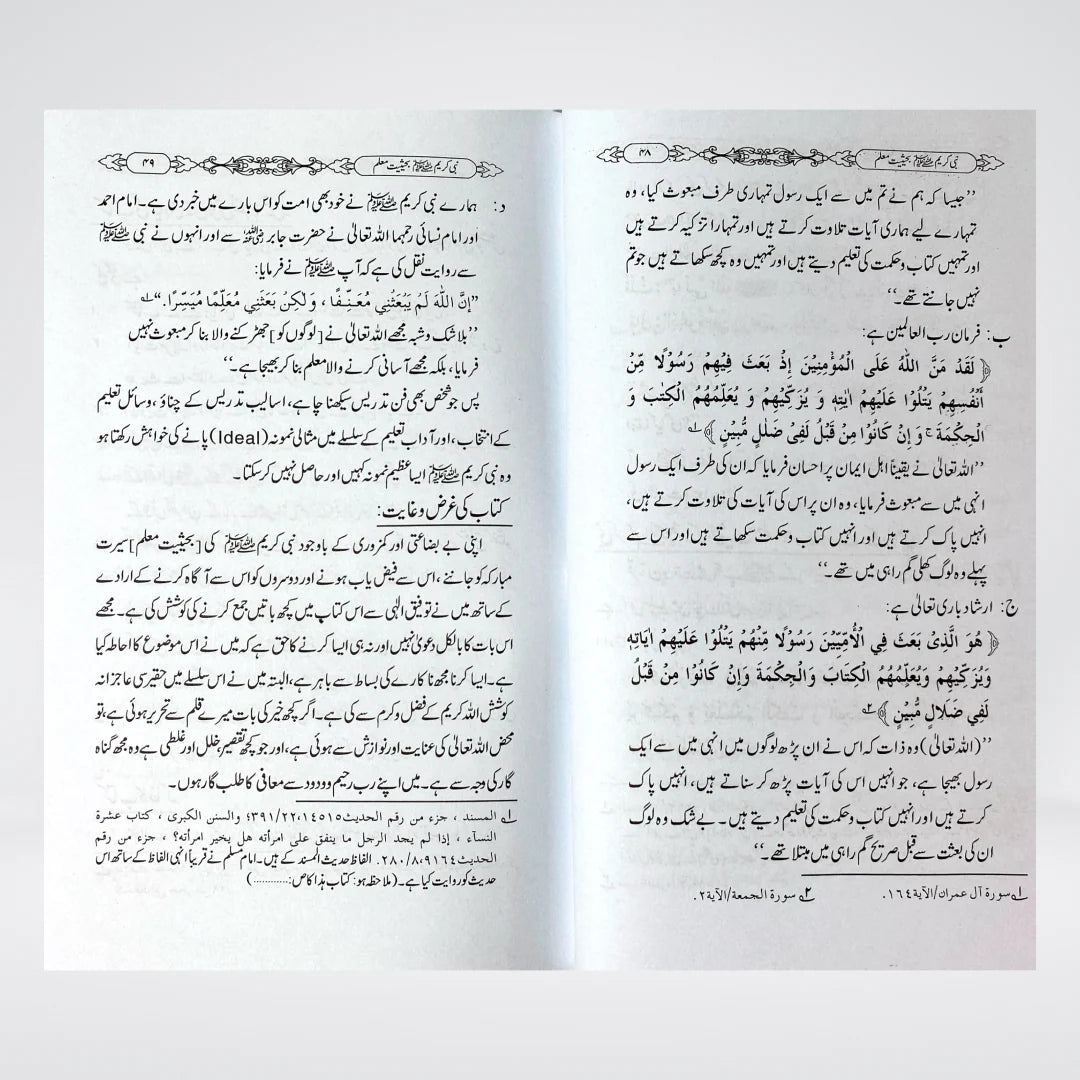 نبی کریم ﷺ بحیثیت معلم
۴۸
’’جیسا کہ ہم نے تم میں سے ایک رسول تمہاری طرف مبعوث کیا، وہ
تمہارے لیے ہماری آیات تلاوت کرتے ہیں اور تمہارا تزکیہ کرتے ہیں
اور تمہیں کتاب و حکمت کی تعلیم دیتے ہیں اور تمہیں وہ کچھ سکھاتے ہیں جو تم
نہیں جانتے تھے۔‘‘
ب: فرمان رب العالمین ہے:
﴿لَقَدْ مَنَّ اللّٰهُ عَلَى الْمُؤْمِنِيْنَ إِذْ بَعَثَ فِيْهِمْ رَسُوْلًا مِّنْ
أَنْفُسِهِمْ يَتْلُوْا عَلَيْهِمْ اٰيٰتِهٖ وَ يُزَكِّيْهِمْ وَ يُعَلِّمُهُمُ الْكِتٰبَ وَ
الْحِكْمَةَ ج وَ إِنْ كَانُوْا مِنْ قَبْلُ لَفِيْ ضَلٰلٍ مُّبِيْنٍ﴾ ۱
’’اللہ تعالیٰ نے یقیناً اہل ایمان پر احسان فرمایا کہ ان کی طرف ایک رسول
انہی میں سے مبعوث فرمایا، وہ ان پر اس کی آیات کی تلاوت کرتے ہیں،
انہیں پاک کرتے ہیں اور انہیں کتاب و حکمت سکھاتے ہیں اور اس سے
پہلے وہ لوگ کھلی گم راہی میں تھے۔‘‘
ج: ارشاد باری تعالیٰ ہے:
﴿هُوَ الَّذِيْ بَعَثَ فِي الْأُمِّيِّيْنَ رَسُوْلًا مِّنْهُمْ يَتْلُوْا عَلَيْهِمْ اٰيَاتِهٖ
وَيُزَكِّيْهِمْ وَيُعَلِّمُهُمُ الْكِتَابَ وَالْحِكْمَةَ وَإِنْ كَانُوْا مِنْ قَبْلُ
لَفِي ضَلَالٍ مُّبِيْنٍ﴾ ۲
’’(اللہ تعالیٰ) وہ ذات کہ اس نے ان پڑھ لوگوں میں انہی میں سے ایک
رسول بھیجا ہے، جو انہیں اس کی آیات پڑھ کر سناتے ہیں، انہیں پاک
کرتے ہیں اور انہیں کتاب و حکمت کی تعلیم دیتے ہیں۔ بے شک وہ لوگ
ان کی بعثت سے قبل صریح گم راہی میں مبتلا تھے۔‘‘
۱ سورة آل عمران/الآية ١٦٤. ۲ سورة الجمعة/الآية ٢.
نبی کریم ﷺ بحیثیت معلم
۴۹
د: ہمارے نبی کریم ﷺ نے خود بھی امت کو اس بارے میں خبر دی ہے۔ امام احمد
اور امام نسائی رحمہما اللہ تعالیٰ نے حضرت جابر رضی اللہ عنہ سے اور انہوں نے نبی ﷺ
سے روایت نقل کی ہے کہ آپ ﷺ نے فرمایا:
”إِنَّ اللّٰهَ لَمْ يَبْعَثْنِي مُعَنِّفًا، وَلٰكِنْ بَعَثَنِي مُعَلِّمًا مُيَسِّرًا.“ ۱
’’بلا شک و شبہ مجھے اللہ تعالیٰ نے [لوگوں کو] جھڑکنے والا بنا کر مبعوث نہیں
فرمایا، بلکہ مجھے آسانی کرنے والا معلم بنا کر بھیجا ہے۔‘‘
پس جو شخص بھی فن تدریس سیکھنا چاہے، اسالیب تدریس کے چناؤ، وسائل تعلیم
کے انتخاب، اور آداب تعلیم کے سلسلے میں مثالی نمونہ (Ideal) پانے کی خواہش رکھتا ہو
وہ نبی کریم ﷺ ایسا عظیم نمونہ کہیں اور حاصل نہیں کر سکتا۔
کتاب کی غرض و غایت:
اپنی بے بضاعتی اور کمزوری کے باوجود نبی کریم ﷺ کی [بحیثیت معلم] سیرت
مبارکہ کو جاننے، اس سے فیض یاب ہونے اور دوسروں کو اس سے آگاہ کرنے کے ارادے
کے ساتھ میں نے توفیق الٰہی سے اس کتاب میں کچھ باتیں جمع کرنے کی کوشش کی ہے۔ مجھے
اس بات کا بالکل دعویٰ نہیں اور نہ ہی ایسا کرنے کا حق ہے کہ میں نے اس موضوع کا احاطہ کیا
ہے۔ ایسا کرنا مجھ ناکارے کی بساط سے باہر ہے، البتہ میں نے اس سلسلے میں حقیر سی عاجزانہ
کوشش اللہ کریم کے فضل و کرم سے کی ہے۔ اگر کچھ خیر کی بات میرے قلم سے تحریر ہوئی ہے، تو
محض اللہ تعالیٰ کی عنایت اور نوازش سے ہوئی ہے، اور جو کچھ تقصیر، خلل اور غلطی ہے وہ مجھ گناہ
گار کی وجہ سے ہے۔ میں اپنے رب رحیم و ودود سے معافی کا طلب گار ہوں۔
۱ المسند، جزء من رقم الحديث ١٤٥١٥، ٣٩١/٢٢؛ والسنن الكبرى، كتاب عشرة
النسآء، إذا لم يجد الرجل ما ينفق على امرأته هل يخير امرأته؟، جزء من رقم
الحديث ٩١٦٤، ٢٨٠/٨. الفاظ حدیث المسند کے ہیں۔ امام مسلم نے قریباً انہی الفاظ کے ساتھ اس
حدیث کو روایت کیا ہے۔ (ملاحظہ ہو: کتاب ہذا کا ص:............)